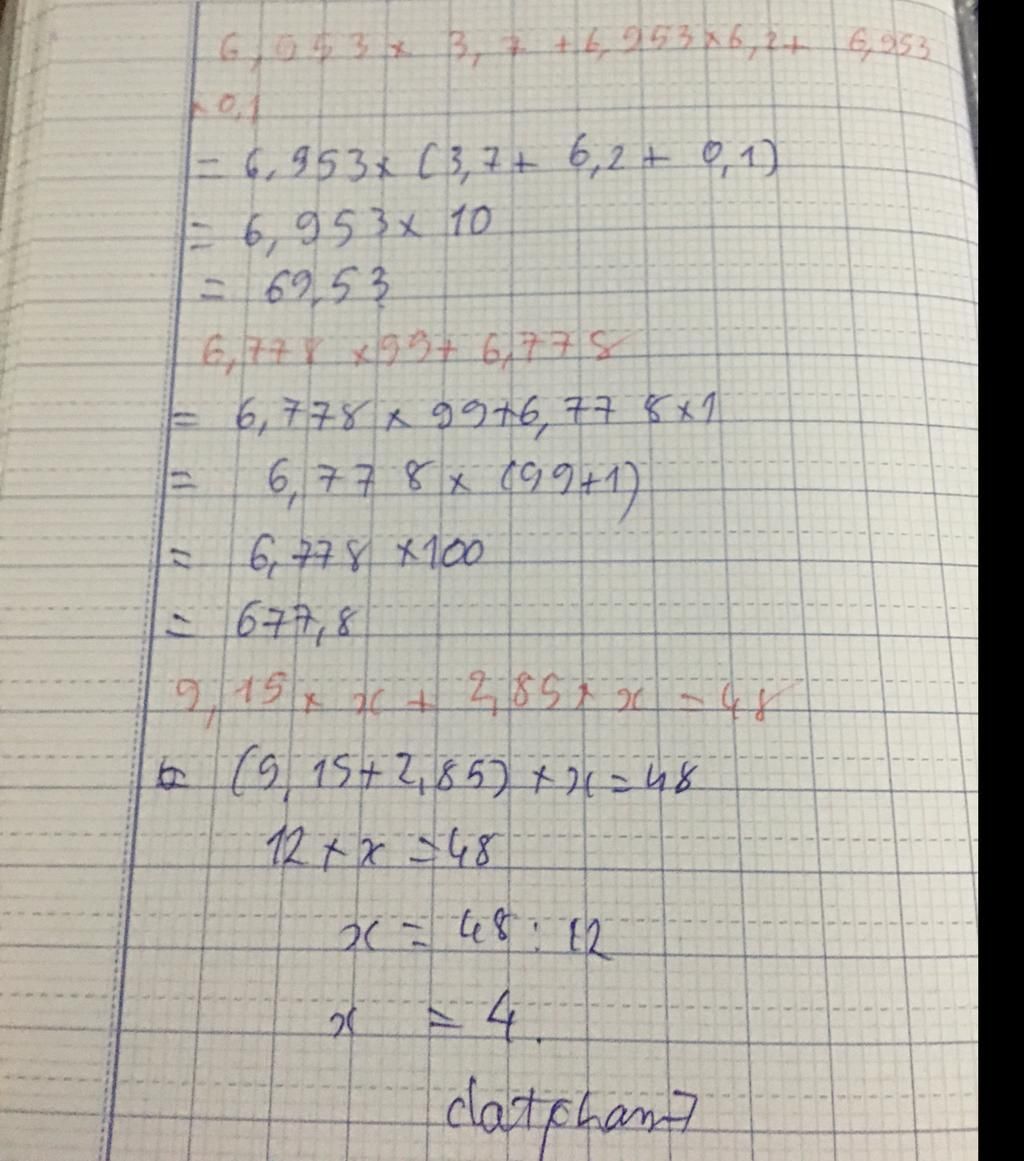 6,953 x 3,7 + 6,953 x 6,2 + 6,953
x 0,1
= 6,953 x (3,7 + 6,2 + 0,1)
= 6,953 x 10
= 69,53
6,778 x 99 + 6,778
= 6,778 x 99 + 6,778 x 1
= 6,778 x (99 + 1)
= 6,778 x 100
= 677,8
9,15 x x + 2,85 x x = 48
(9,15 + 2,85) x x = 48
12 x x = 48
x = 48 : 12
x = 4.
datphan7